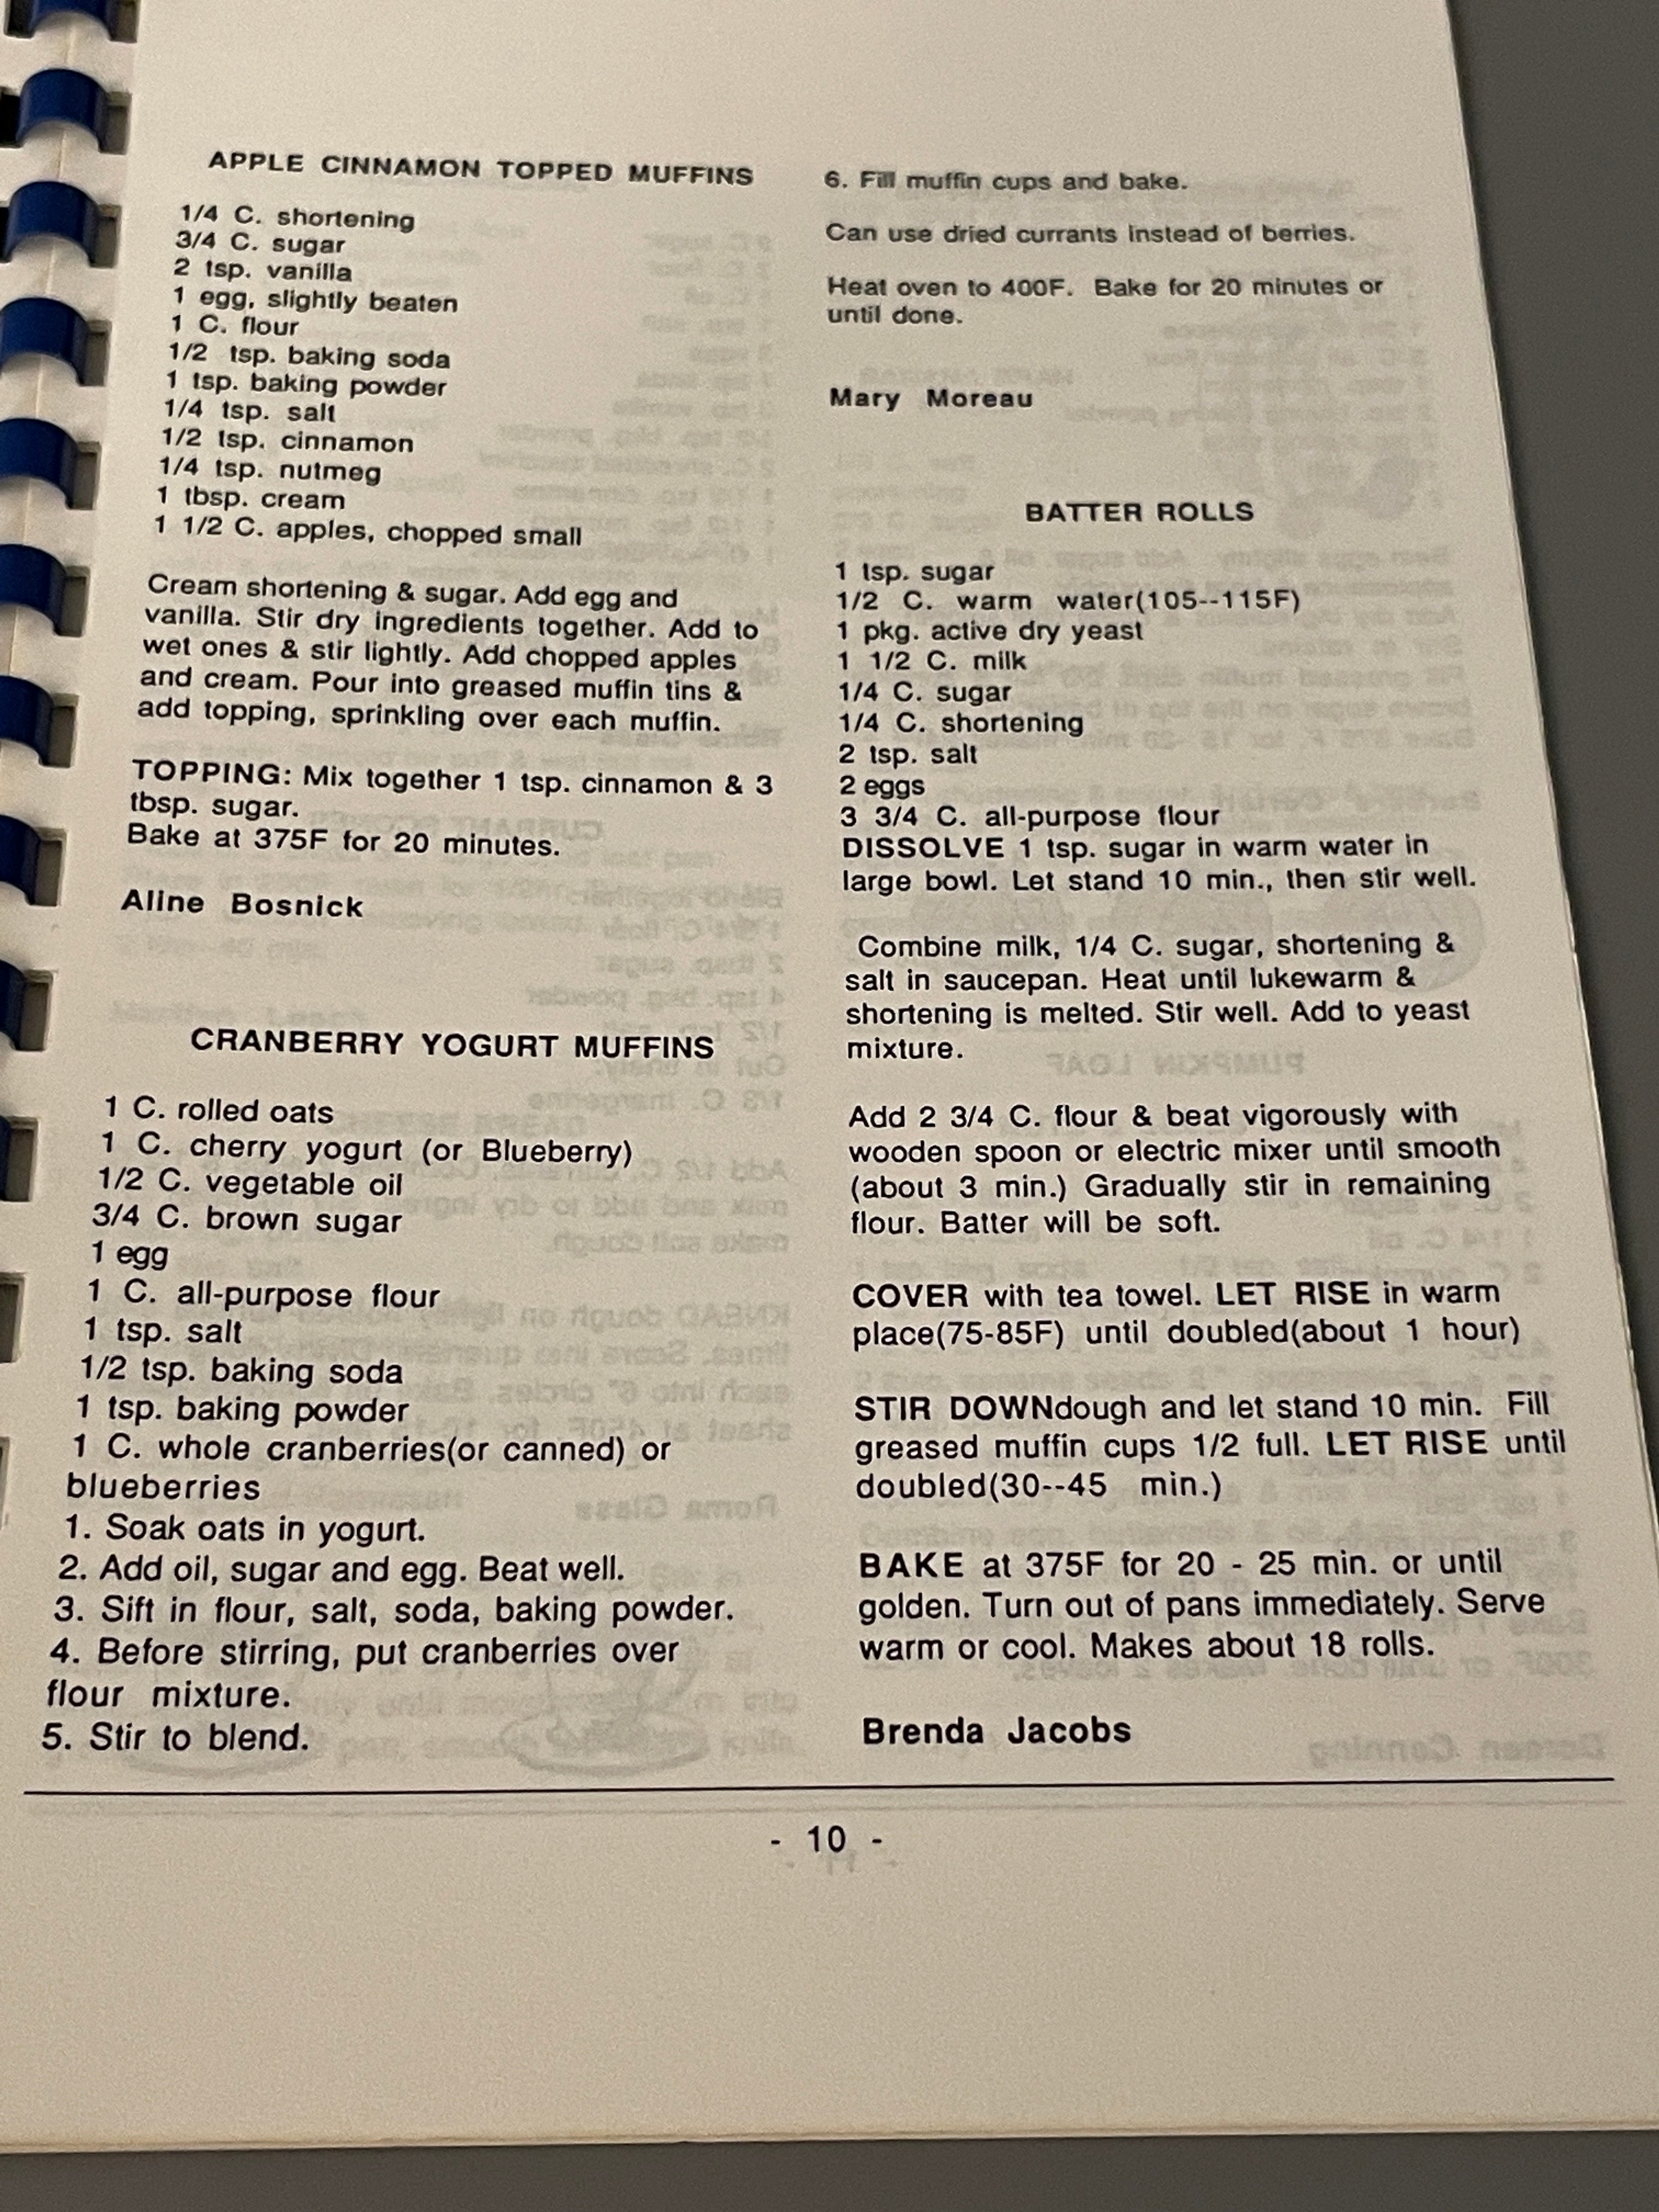 APPLE CINNAMON TOPPED MUFFINS
1/4 C. shortening
3/4 C. sugar
2 tsp. vanilla
1 egg, slightly beaten
1 C. flour
1/2 tsp. baking soda
1 tsp. baking powder
1/4 tsp. salt
1/2 tsp. cinnamon
1/4 tsp. nutmeg
1 tbsp. cream
1 1/2 C. apples, chopped small
Cream shortening & sugar. Add egg and
vanilla. Stir dry ingredients together. Add to
wet ones & stir lightly. Add chopped apples
and cream. Pour into greased muffin tins &
add topping, sprinkling over each muffin.
TOPPING: Mix together 1 tsp. cinnamon & 3
tbsp. sugar.
Bake at 375F for 20 minutes.
Aline Bosnick
CRANBERRY YOGURT MUFFINS
1 C. rolled oats
1 C. cherry yogurt (or Blueberry)
1/2 C. vegetable oil
3/4 C. brown sugar
1 egg
1 C. all-purpose flour
1 tsp. salt
1/2 tsp. baking soda
1 tsp. baking powder
1 C. whole cranberries(or canned) or
blueberries
1. Soak oats in yogurt.
2. Add oil, sugar and egg. Beat well.
3. Sift in flour, salt, soda, baking powder.
4. Before stirring, put cranberries over
flour mixture.
5. Stir to blend.
6. Fill muffin cups and bake.
Can use dried currants instead of berries.
Heat oven to 400F. Bake for 20 minutes or
until done.
Mary Moreau
BATTER ROLLS
1 tsp. sugar
1/2 C. warm water(105--115F)
1 pkg. active dry yeast
1 1/2 C. milk
1/4 C. sugar
1/4 C. shortening
2 tsp. salt
2 eggs
3 3/4 C. all-purpose flour
DISSOLVE 1 tsp. sugar in warm water in
large bowl. Let stand 10 min., then stir well.
Combine milk, 1/4 C. sugar, shortening &
salt in saucepan. Heat until lukewarm &
shortening is melted. Stir well. Add to yeast
mixture.
Add 2 3/4 C. flour & beat vigorously with
wooden spoon or electric mixer until smooth
(about 3 min.) Gradually stir in remaining
flour. Batter will be soft.
COVER with tea towel. LET RISE in warm
place(75-85F) until doubled(about 1 hour)
STIR DOWNdough and let stand 10 min. Fill
greased muffin cups 1/2 full. LET RISE until
doubled(30--45 min.)
BAKE at 375F for 20 - 25 min. or until
golden. Turn out of pans immediately. Serve
warm or cool. Makes about 18 rolls.
Brenda Jacobs
- 10 -